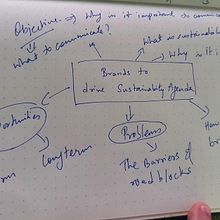 Objective. → Why is it important to commun
what to communicate?
What is sustainabl
Why is it i
Brands to
drive Sustainability Agenda
ortunities
Problems
How
br
Long term
rm
The Barriers &
road blocks